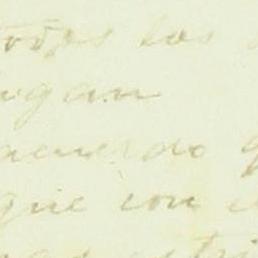 todos los
ogan
acuerdo q
que con